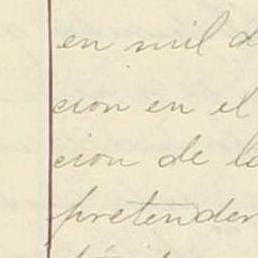 en mil d
cion en el
cion de la
pretender